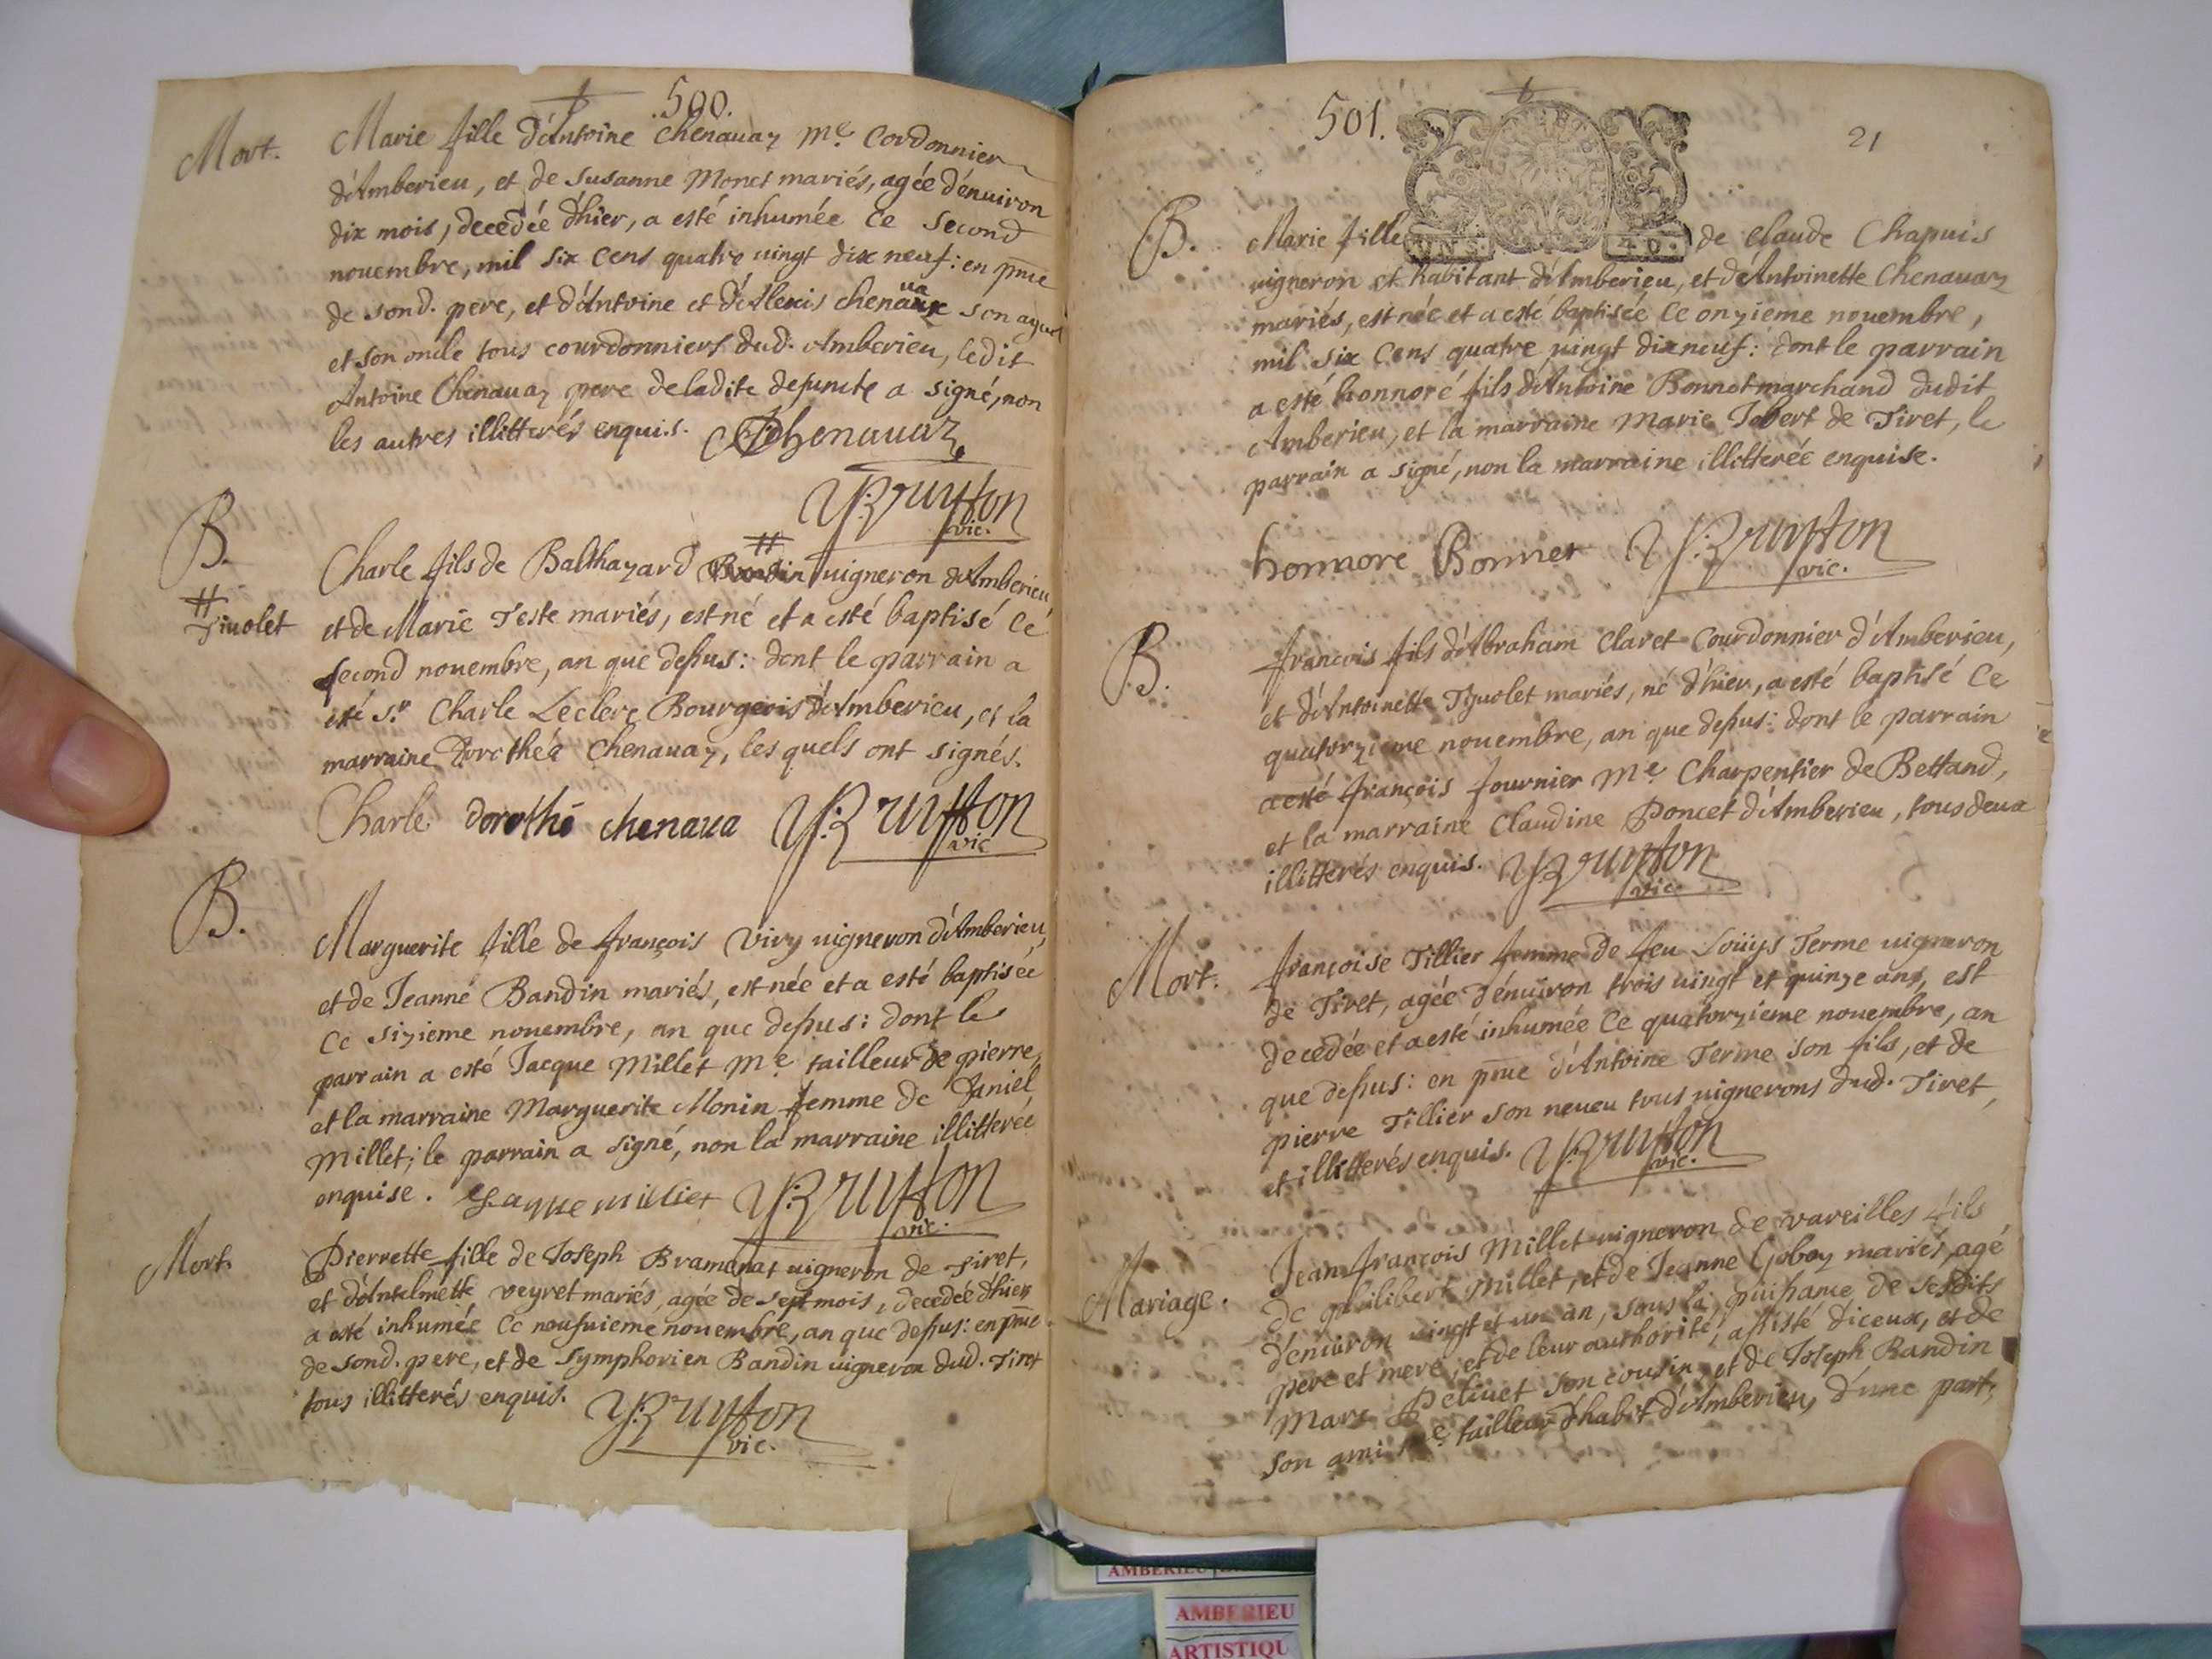 .500.
Mort.
Marie fille d'Antoine Chenauaz Me. Cordonnier
d'Amberieu, et de Susanne Monet mariés, agée d'enuiron
dix mois, decedée d'hier, a esté inhumée ce second
nouembre, mil six cens quatre uingt dix neuf: en pnce
de sond. pere, et d'Antoine et d'Alexis chenauax son ayeul
et son oncle tous courdonniers dud. Amberieu, ledit
Antoine Chenauaz pere de ladite defuncte a signé, non
les autres illitterés enquis. Chenauaz
Brunon
vic.
B.
#
Tiuolet
#
Charle fils de Balthazard Bandin uigneron d'Amberieu
et de Marie Teste mariés, est né et a esté baptisé ce
second nouembre, an que dessus: dont le parrain a
esté Sr. Charle Leclerc Bourgeois d'Amberieu, et la
marraine Dorothéa Chenauaz, les quels ont signés.
Charle dorothé chenaua
vic
B.
Marguerite fille de françois Viry uigneron d'Amberieu,
et de Jeanne Bandin mariés, est née et a esté baptisée
ce sizieme nouembre, an que dessus: dont le
parrain a esté Jacque Millet Me. tailleur de pierre,
et la marraine Marguerite Monin femme de Daniel
Millet; le parrain a signé, non la marraine illitterée
enquise. Jaque Milliet
vic.
Mort.
Pierrette fille de Joseph Bramerat uigneron de Tiret,
et d'Antelmette veyret mariés, agée de sept mois, decedée d'hier
a esté inhumée ce neufuieme nouembre, an que dessus: en pnce
de sond. pere, et de Symphorien Bandin uigneron dud. Tiret
tous illitterés enquis.
vic.
501.
21
B.
Marie fille de Claude Chapuis
uigneron et habitant d'Amberieu, et d'Antoinette Chenauaz
mariés, est née et a esté baptisée ce onzieme nouembre,
mil six cens quatre uingt dix neuf: dont le parrain
a esté honnoré fils d'Antoine Bonnet marchand dudit
Amberieu, et la marraine Marie Jobert de Tiret, le
parrain a signé, non la marraine illitterée enquise.
honnore Bonnet
vic.
B.
françois fils d'Abraham Claret Courdonnier d'Amberieu,
et d'Antoinette Tiuolet mariés, né d'hier, a esté baptisé ce
quatorzieme nouembre, an que dessus: dont le parrain
a esté françois fournier Me. Charpentier de Bettand,
et la marraine Claudine Poncet d'Amberieu, tous deux
illitterés enquis.
vic.
Mort.
françoise Tillier femme de feu Loüys Terme uigneron
de Tiret, agée d'enuiron trois uingt et quinze ans, est
decedée et a esté inhumée ce quatorzieme nouembre, an
que dessus: en pnce d'Antoine Terme son fils, et de
pierre Tillier son neueu tous uignerons dud. Tiret,
et illitterés enquis.
vic.
Mariage.
Jean françois Millet uigneron de vareilles fils
de philibert Millet, et de Jeanne Gobaz mariés, agé
d'enuiron uingt et un an, sous la puissance de sesdits
pere et mere, et de leur authorité, assisté d'iceux, et de
Marc Peliuet son cousin, et de Joseph Bandin
son ami Me tailleur d'habit d'Amberieu, d'une part,
AMBERIEU
AMBERIEU
ARTISTIQU